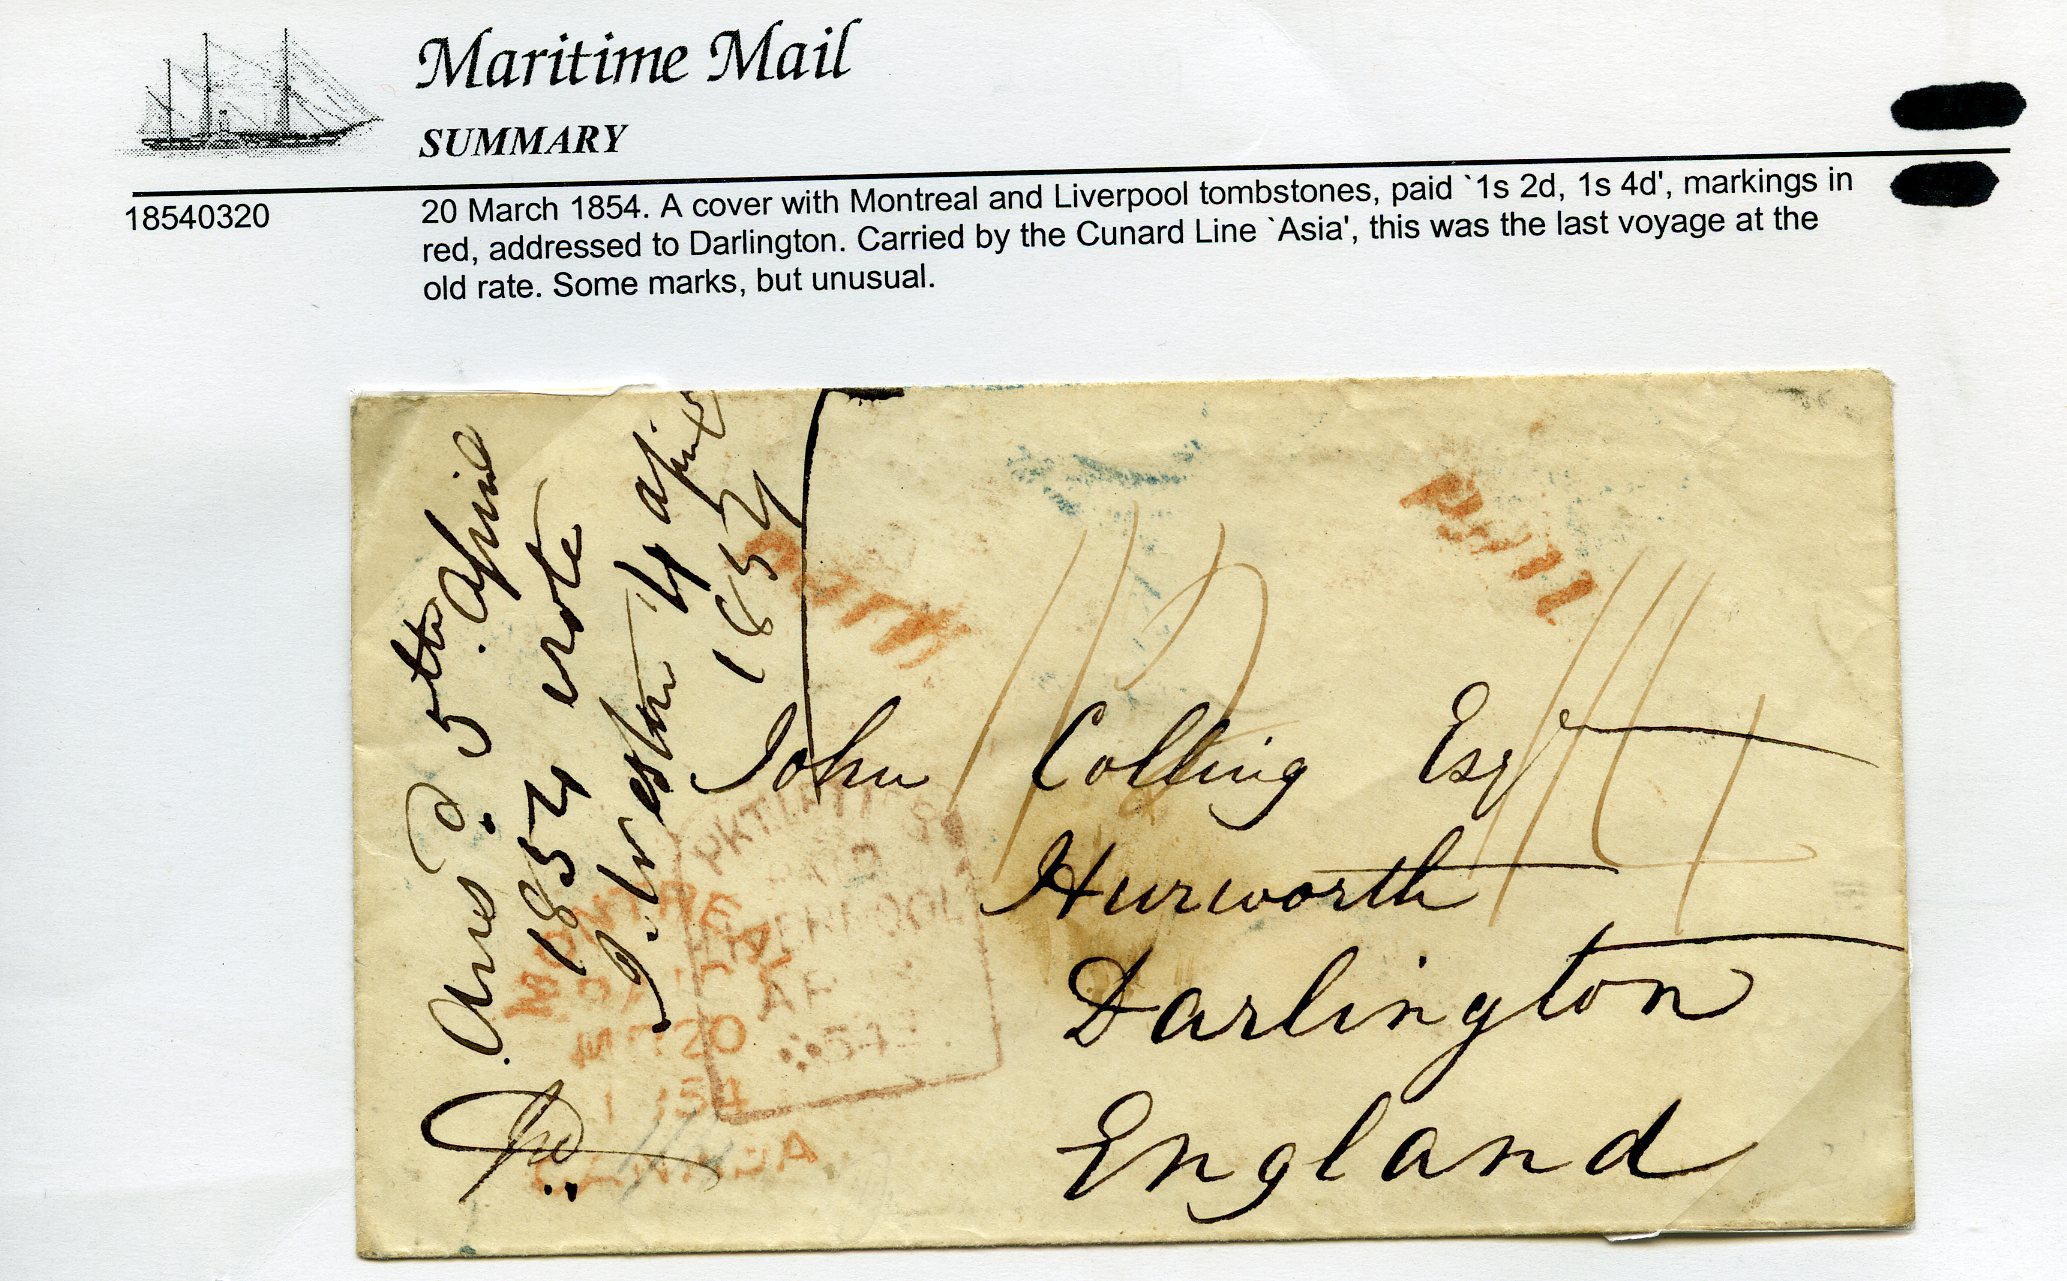 Maritime Mail
SUMMARY
18540320
20 March 1854. A cover with Montreal and Liverpool tombstones, paid `1s 2d, 1s 4d', markings in
red, addressed to Darlington. Carried by the Cunard Line `Asia', this was the last voyage at the
old rate. Some marks, but unusual.
Ans.d 5th April
1854 wrote
4 april
1854
John Colling Esqr
Hurworth
Darlington
England
MONTREAL
PAID
20
1854
CANADA
LIVERPOOL
AP
1854